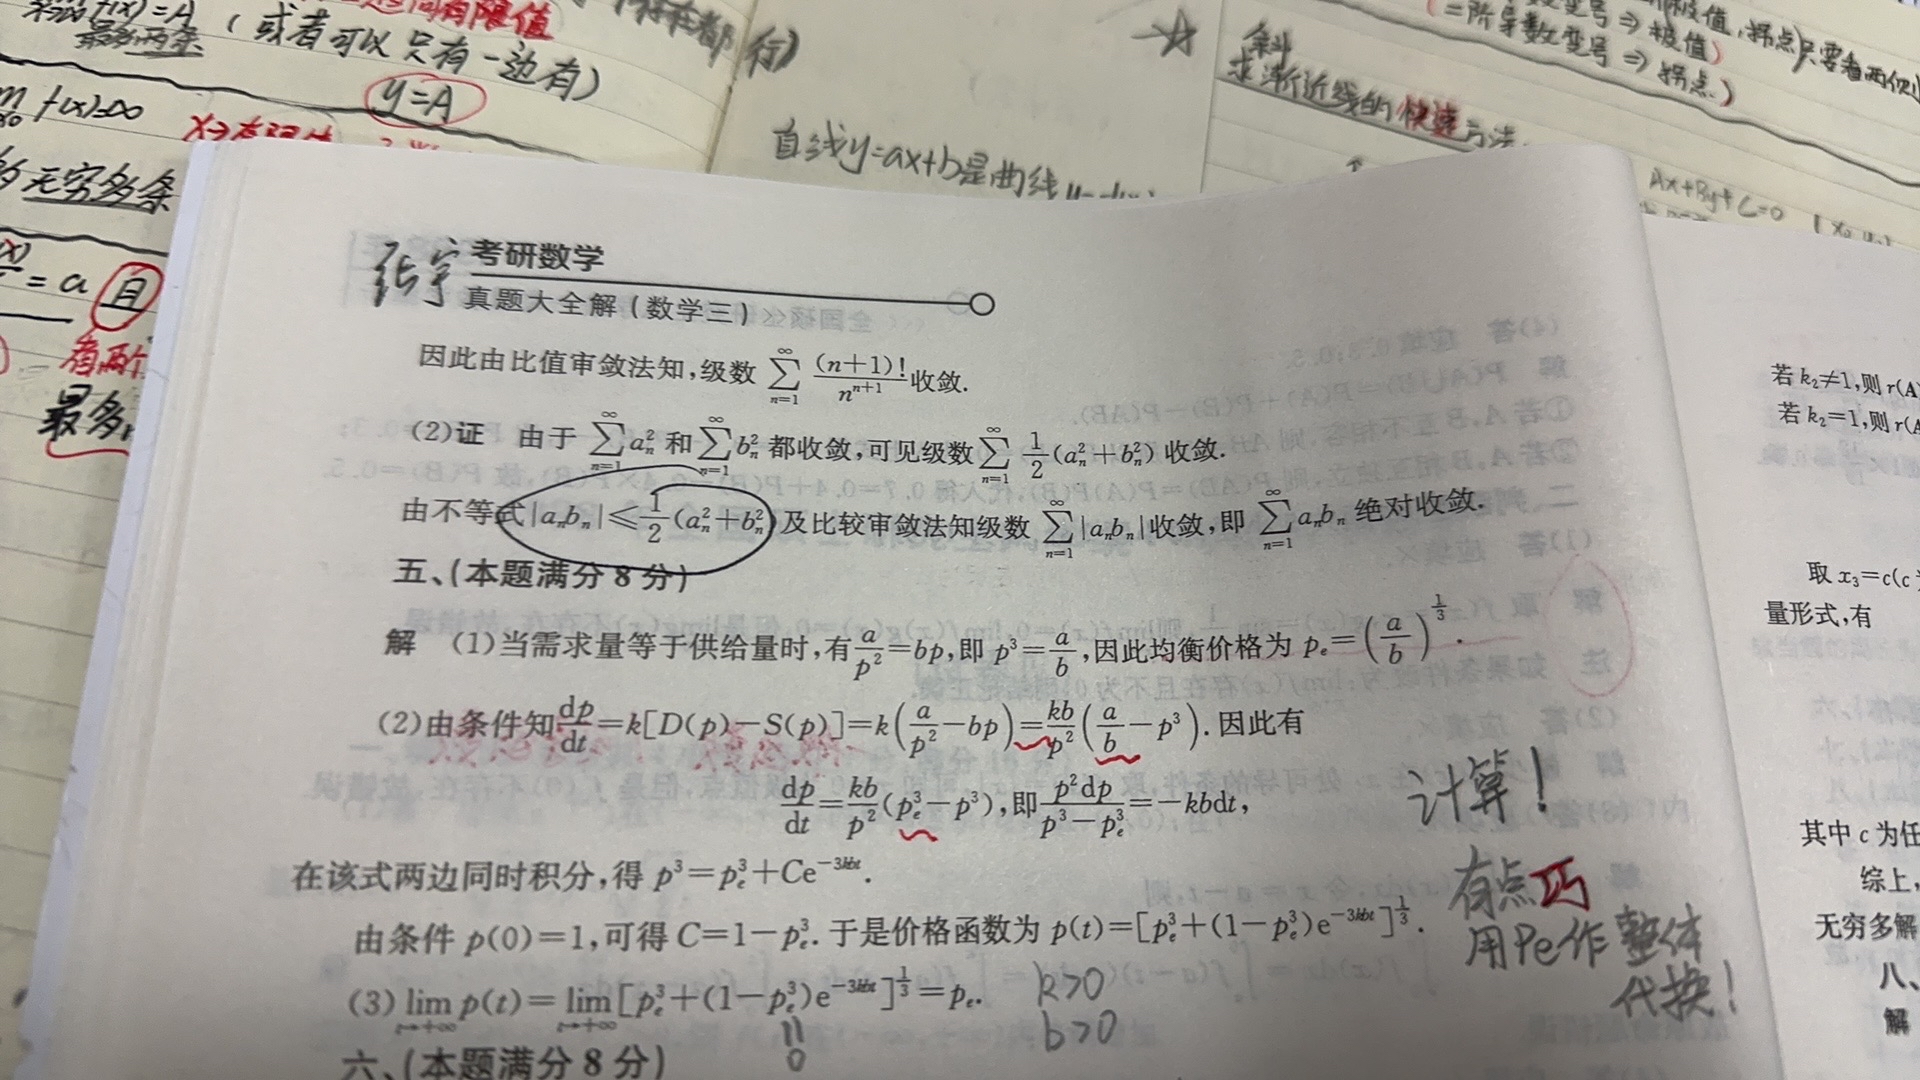 (或者可以只有一边有)
y=A
无穷多条
=a 且
有两个
最多
直线y=ax+b是曲线
斜
求渐近线的快速方法
⇒极值)
二阶导数变号⇒拐点)
Ax+By+C=0
张宇 考研数学
真题大全解(数学三)
因此由比值审敛法知,级数 ∑_{n=1}^{∞} (n+1)!/n^{n+1} 收敛.
(2)证 由于 ∑_{n=1}^{∞} a_n^2 和 ∑_{n=1}^{∞} b_n^2 都收敛,可见级数 ∑_{n=1}^{∞} 1/2(a_n^2+b_n^2) 收敛.
由不等式|a_nb_n|≤1/2(a_n^2+b_n^2)及比较审敛法知级数 ∑_{n=1}^{∞}|a_nb_n|收敛,即 ∑_{n=1}^{∞}a_nb_n 绝对收敛.
五、(本题满分8分)
解 (1)当需求量等于供给量时,有a/p^2=bp,即 p^3=a/b,因此均衡价格为 p_e=(a/b)^{1/3}.
(2)由条件知dp/dt=k[D(p)-S(p)]=k(a/p^2-bp)=kb/p^2(a/b-p^3).因此有
dp/dt=kb/p^2(p_e^3-p^3),即p^2dp/(p^3-p_e^3)=-kbdt,
计算!
在该式两边同时积分,得 p^3=p_e^3+Ce^{-3kbt}.
有点巧
由条件 p(0)=1,可得 C=1-p_e^3.于是价格函数为 p(t)=[p_e^3+(1-p_e^3)e^{-3kbt}]^{1/3}.
用Pe作整体
代换!
(3) lim_{t→+∞} p(t)= lim_{t→+∞}[p_e^3+(1-p_e^3)e^{-3kbt}]^{1/3}=p_e.
k>0
b>0
0
六、(本题满分8分)
若 k_2≠1,则 r(A
若 k_2=1,则 r(A
取 x_3=c(c
量形式,有
其中 c 为任
综上,
无穷多解
八、
解